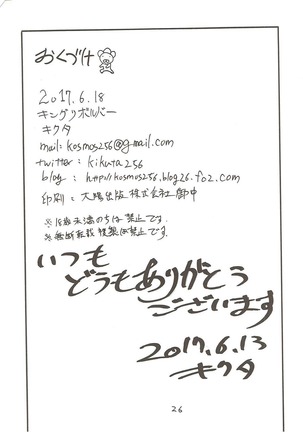 おくづけ
2017.6.18
キングリボルバー
キクタ
mail:kosmos256@gmail.com
twitter:kikuta256
blog:http://kosmos256.blog26.fc2.com
印刷:大陽出版株式会社 御中
※18歳未満のちは禁止です.
※無断転載 複製は禁止です.
いつも
どうもありがとう
ございます
2017.6.13
キクタ
26